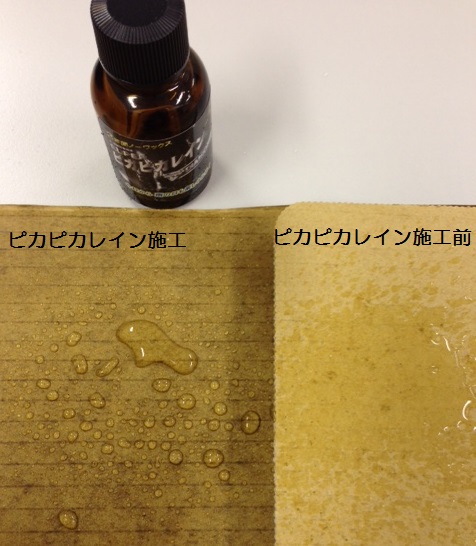 ノーワックス
ピカピカレイン
ピカピカレイン施工
ピカピカレイン施工前